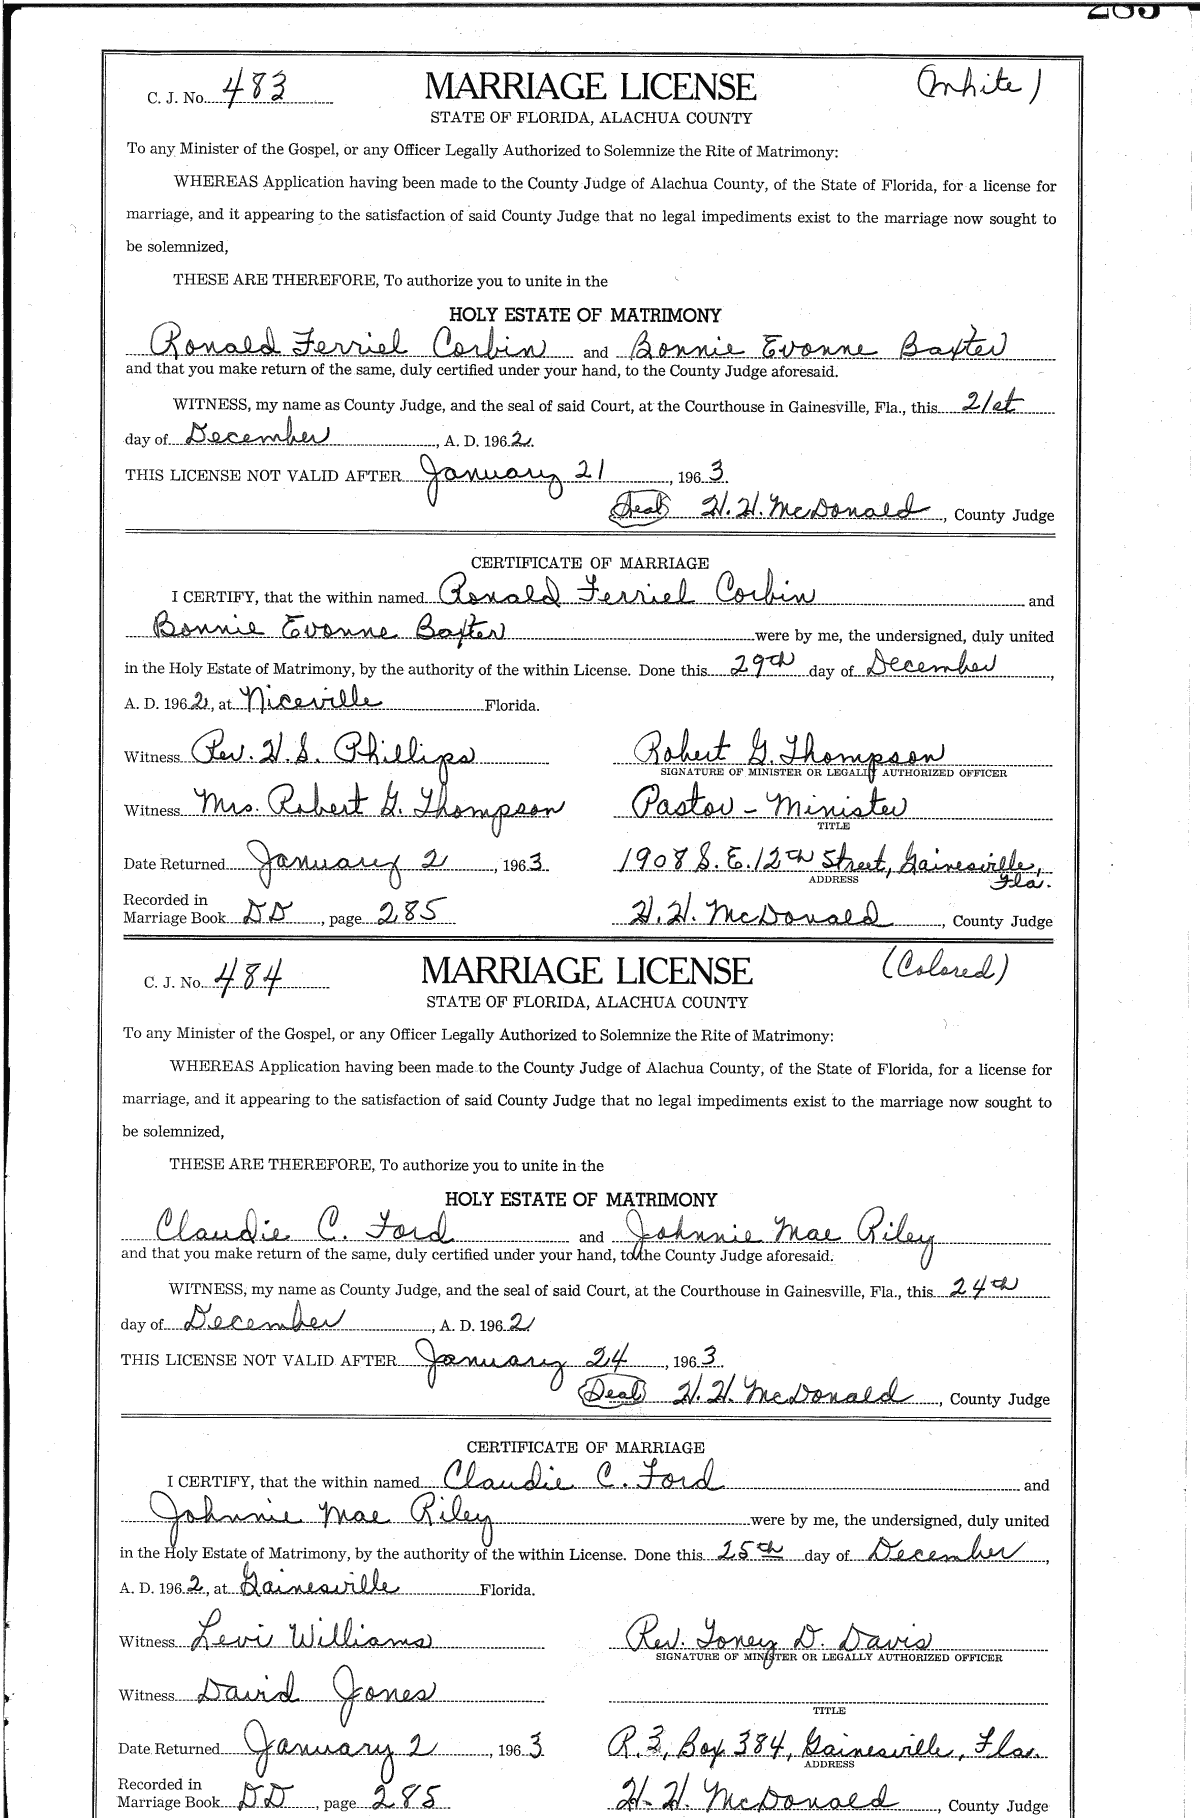 285
C. J. No. 483 MARRIAGE LICENSE (White)
STATE OF FLORIDA, ALACHUA COUNTY
To any Minister of the Gospel, or any Officer Legally Authorized to Solemnize the Rite of Matrimony:
WHEREAS Application having been made to the County Judge of Alachua County, of the State of Florida, for a license for
marriage, and it appearing to the satisfaction of said County Judge that no legal impediments exist to the marriage now sought to
be solemnized,
THESE ARE THEREFORE, To authorize you to unite in the
HOLY ESTATE OF MATRIMONY
Ronald Ferriel Corbin and Bonnie Evonne Baxter
and that you make return of the same, duly certified under your hand, to the County Judge aforesaid.
WITNESS, my name as County Judge, and the seal of said Court, at the Courthouse in Gainesville, Fla., this 21st
day of December, A. D. 1962.
THIS LICENSE NOT VALID AFTER January 21, 1963.
(Seal) H. H. McDonald, County Judge
CERTIFICATE OF MARRIAGE
I CERTIFY, that the within named Ronald Ferriel Corbin and
Bonnie Evonne Baxter were by me, the undersigned, duly united
in the Holy Estate of Matrimony, by the authority of the within License. Done this 29th day of December,
A. D. 1962, at Niceville Florida.
Witness Rev. H. S. Phillips Robert G. Thompson
SIGNATURE OF MINISTER OR LEGALLY AUTHORIZED OFFICER
Witness Mrs. Robert G. Thompson Pastor - Minister
TITLE
Date Returned January 2, 1963 1908 S. E. 12th Street, Gainesville, Fla.
ADDRESS
Recorded in
Marriage Book DD, page 285 H. H. McDonald, County Judge
C. J. No. 484 MARRIAGE LICENSE (Colored)
STATE OF FLORIDA, ALACHUA COUNTY
To any Minister of the Gospel, or any Officer Legally Authorized to Solemnize the Rite of Matrimony:
WHEREAS Application having been made to the County Judge of Alachua County, of the State of Florida, for a license for
marriage, and it appearing to the satisfaction of said County Judge that no legal impediments exist to the marriage now sought to
be solemnized,
THESE ARE THEREFORE, To authorize you to unite in the
HOLY ESTATE OF MATRIMONY
Claudie C. Ford and Johnnie Mae Riley
and that you make return of the same, duly certified under your hand, to the County Judge aforesaid.
WITNESS, my name as County Judge, and the seal of said Court, at the Courthouse in Gainesville, Fla., this 24th
day of December, A. D. 1962
THIS LICENSE NOT VALID AFTER January 24, 1963.
(Seal) H. H. McDonald, County Judge
CERTIFICATE OF MARRIAGE
I CERTIFY, that the within named Claudie C. Ford and
Johnnie Mae Riley were by me, the undersigned, duly united
in the Holy Estate of Matrimony, by the authority of the within License. Done this 25th day of December,
A. D. 1962, at Gainesville Florida.
Witness Levi Williams Rev. Toney D. Davis
SIGNATURE OF MINISTER OR LEGALLY AUTHORIZED OFFICER
Witness David Jones
TITLE
Date Returned January 2, 1963 R. 3, Box 384, Gainesville, Fla.
ADDRESS
Recorded in
Marriage Book DD, page 285 H. H. McDonald, County Judge